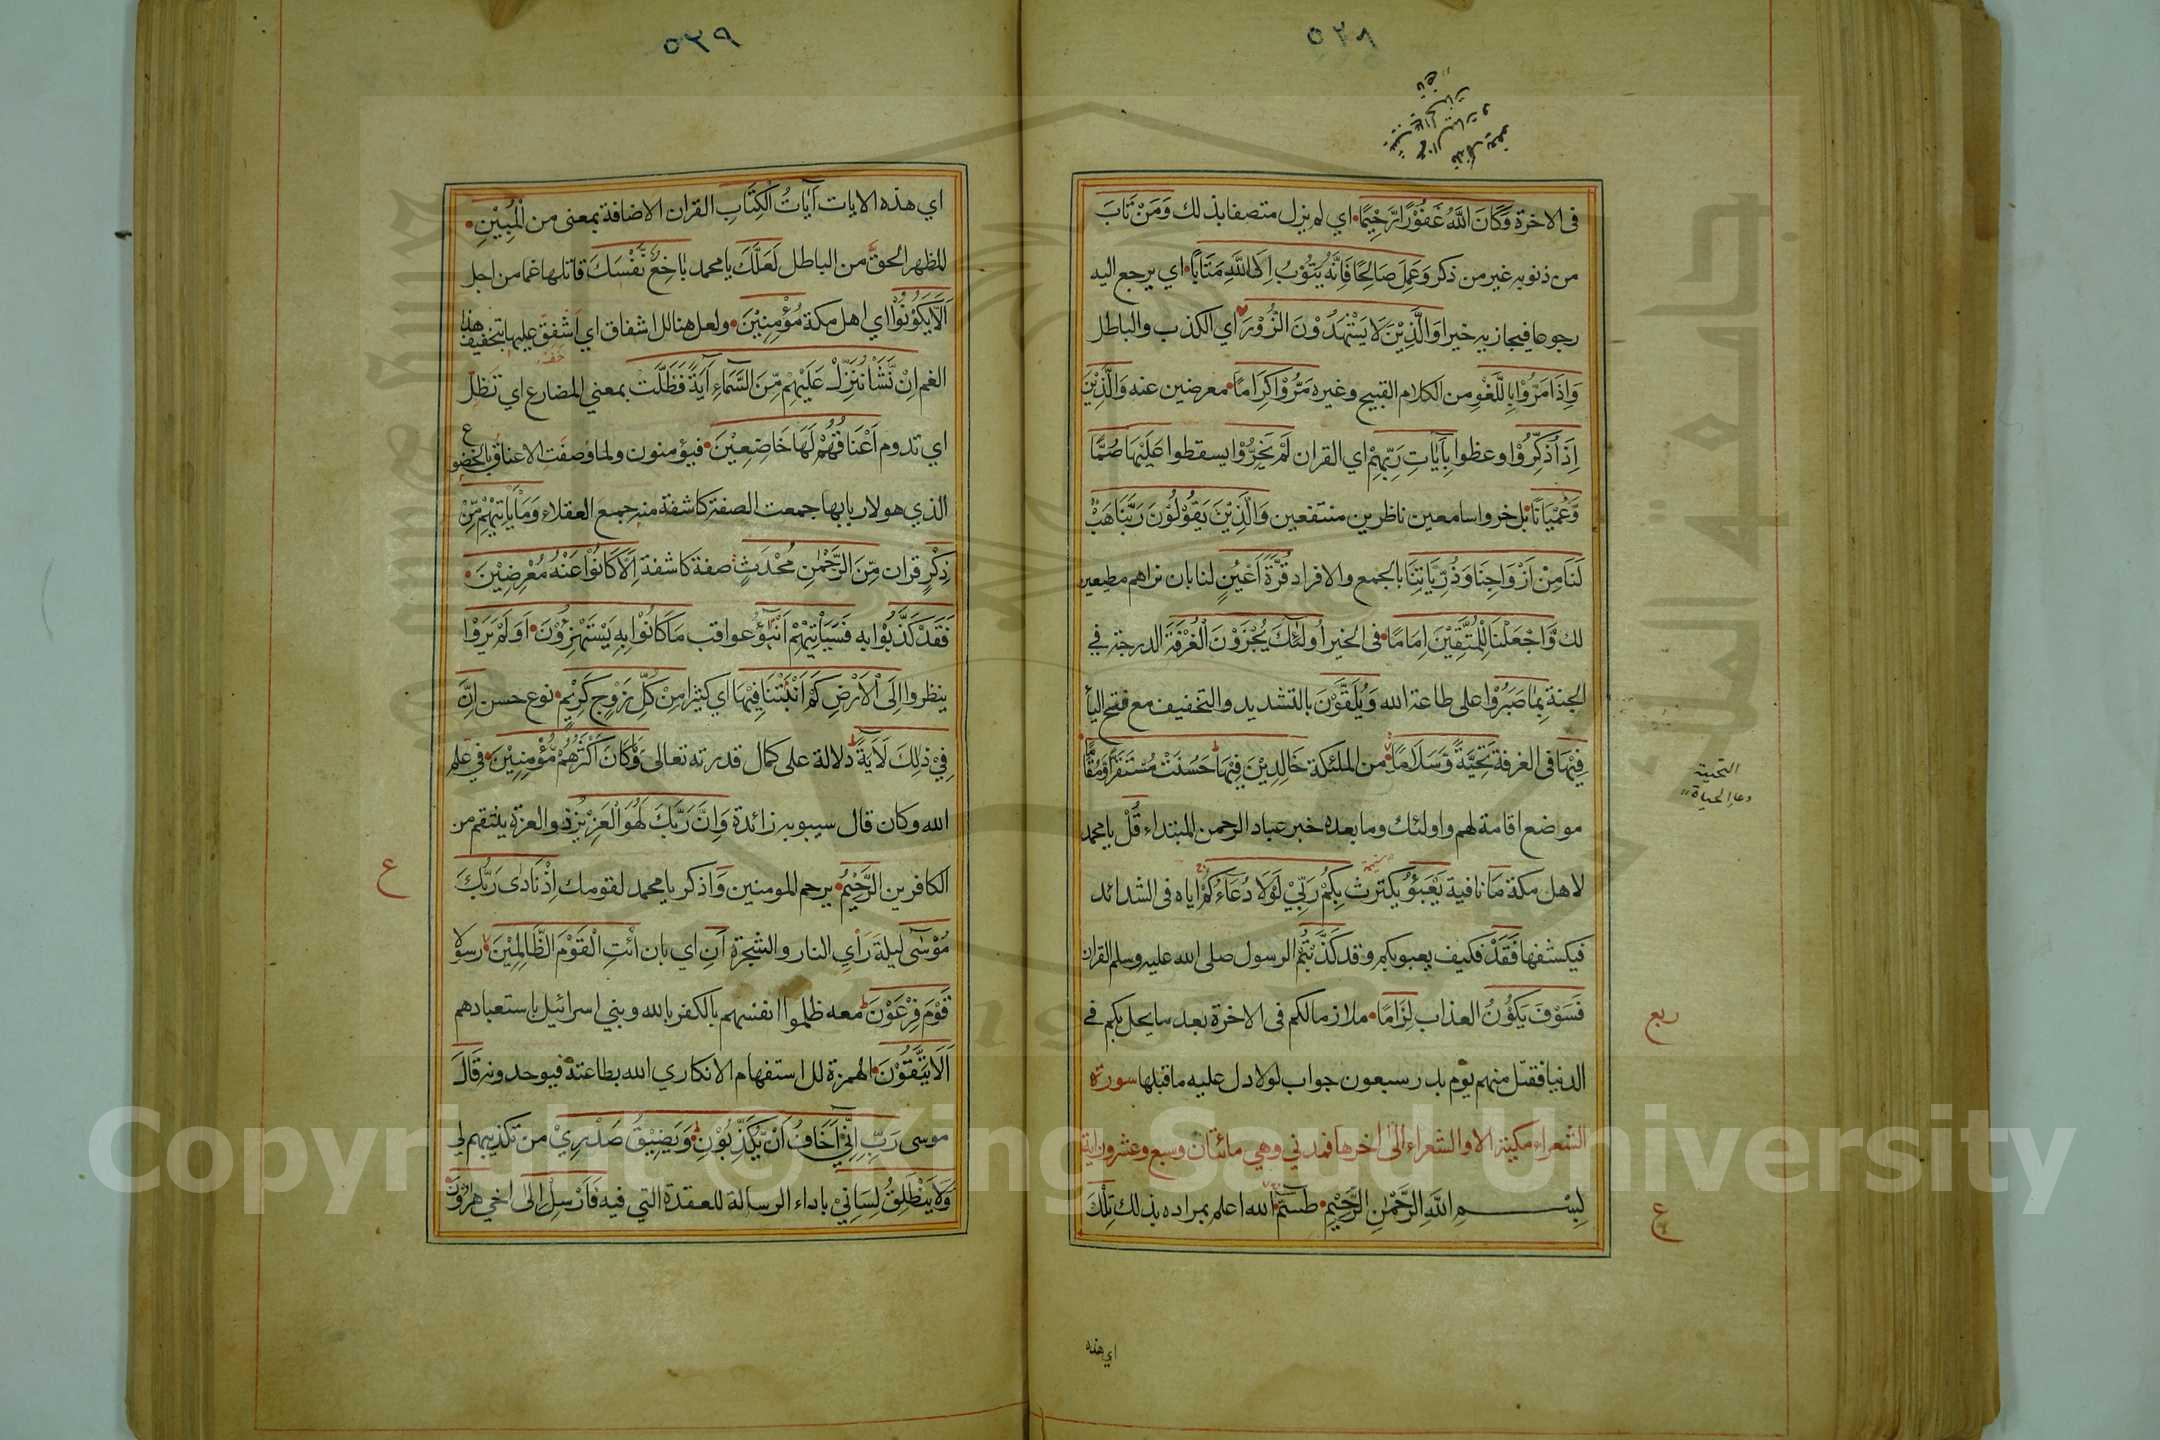 ٥٣٨
في الاخرة وَكَانَ اللَّهُ غَفُوْرًا رَّحِيْمًا اي لم يزل متصفا بذلك وَمَنْ تَابَ
من ذنوبه غير من ذكر وَعَمِلَ صَالِحًا فَاِنَّهُ يَتُوْبُ اِلَى اللَّهِ مَتَابًا اي يرجع اليه
رجوعا فيجازيه خيرا وَالَّذِيْنَ لَا يَشْهَدُوْنَ الزُّوْرَ اي الكذب والباطل
وَاِذَا مَرُّوْا بِاللَّغْوِ من الكلام القبيح وغيره مَرُّوْا كِرَامًا معرضين عنه وَالَّذِيْنَ
اِذَا ذُكِّرُوْا وعظوا بِآيَاتِ رَبِّهِمْ اي القران لَمْ يَخِرُّوْا يسقطوا عَلَيْهَا صُمًّا
وَّعُمْيَانًا بل خروا سامعين ناظرين منتفعين وَالَّذِيْنَ يَقُوْلُوْنَ رَبَّنَا هَبْ
لَنَا مِنْ اَزْوَاجِنَا وَذُرِّيَّاتِنَا بالجمع والافراد قُرَّةَ اَعْيُنٍ لنا بان نراهم مطيعين
لك وَّاجْعَلْنَا لِلْمُتَّقِيْنَ اِمَامًا في الخير اُولٰئِكَ يُجْزَوْنَ الْغُرْفَةَ الدرجة في
الجنة بِمَا صَبَرُوْا على طاعة الله وَيُلَقَّوْنَ بالتشديد والتخفيف مع فتح اليأ
فِيْهَا في الغرفة تَحِيَّةً وَّسَلَامًا من الملئكة خَالِدِيْنَ فِيْهَا حَسُنَتْ مُسْتَقَرًّا وَّمُقَامًا
التحية
دعا الحياة
مواضع اقامة لهم واولئك وما بعده خبر عباد الرحمن المبتداء قُلْ يا محمد
لاهل مكة مَا نافية يَعْبَؤُ يكترث بِكُمْ رَبِّيْ لَوْلَا دُعَاءُكُمْ اياه في الشدائد
فيكشفها فَقَدْ فكيف يعبو بكم وقد كَذَّبْتُمْ الرسول صلى الله عليه وسلم القران
فَسَوْفَ يَكُوْنُ العذاب لِزَامًا ملازما لكم في الاخرة بعد ما يحل بكم في
ربع
الدنيا فقتل منهم يوم بدر سبعون جواب لولا دل عليه ما قبلها سورة
الشعراء مكية الا والشعراء الى اخرها فمدني وهي مائتان وسبع وعشرون اية
بِسْمِ اللَّهِ الرَّحْمٰنِ الرَّحِيْمِ طٰسٓمّٓ الله اعلم بمراده بذلك تِلْكَ
ع
اي هذه
٥٣٩
اي هذه الايات آيَاتُ الْكِتَابِ القران الاضافة بمعنى من الْمُبِيْنِ
المظهر الحق من الباطل لَعَلَّكَ يا محمد بَاخِعٌ نَّفْسَكَ قاتلها غما من اجل
اَلَّا يَكُوْنُوْا اي اهل مكة مُؤْمِنِيْنَ ولعل هنا للاشفاق اي اشفق عليها بتخفيف هذا
الغم اِنْ نَّشَأْ نُنَزِّلْ عَلَيْهِمْ مِّنَ السَّمَاءِ آيَةً فَظَلَّتْ بمعني المضارع اي تظل
اي تدوم اَعْنَاقُهُمْ لَهَا خَاضِعِيْنَ فيؤمنون ولما وصفت الاعناق بالخضوع
الذي هو لاربابها جمعت الصفة كاشفة منه جمع العقلاء وَمَا يَاْتِيْهِمْ مِّنْ
ذِكْرٍ قران مِّنَ الرَّحْمٰنِ مُحْدَثٍ صفة كاشفة اِلَّا كَانُوْا عَنْهُ مُعْرِضِيْنَ
فَقَدْ كَذَّبُوْا به فَسَيَأْتِيْهِمْ اَنْبٰٓؤُ عواقب مَا كَانُوْا بِهِ يَسْتَهْزِءُوْنَ اَوَلَمْ يَرَوْا
ينظروا اِلَى الْاَرْضِ كَمْ اَنْبَتْنَا فِيْهَا اي كثيرا مِنْ كُلِّ زَوْجٍ كَرِيْمٍ نوع حسن اِنَّ
فِيْ ذٰلِكَ لَآيَةً دلالة على كمال قدرته تعالى وَمَا كَانَ اَكْثَرُهُمْ مُّؤْمِنِيْنَ في علم
الله وكان قال سيبويه زائدة وَاِنَّ رَبَّكَ لَهُوَ الْعَزِيْزُ ذو العزة ينتقم من
الكافرين الرَّحِيْمُ يرحم المومنين وَاذكر يا محمد لقومك اِذْ نَادٰى رَبُّكَ
ع
مُوْسٰى ليلة راي النار والشجرة اَنِ اي بان ائْتِ الْقَوْمَ الظَّالِمِيْنَ رسولا
قَوْمَ فِرْعَوْنَ معه ظلموا انفسهم بالكفر بالله وبني اسرائيل باستعبادهم
اَلَا يَتَّقُوْنَ الهمزة للاستفهام الانكاري الله بطاعته فيوحدونه قَالَ
موسى رَبِّ اِنِّيْ اَخَافُ اَنْ يُّكَذِّبُوْنِ وَيَضِيْقُ صَدْرِيْ من تكذيبهم لي
وَلَا يَنْطَلِقُ لِسَانِيْ باداء الرسالة للعقدة التي فيه فَاَرْسِلْ اِلٰى اخي هٰرُوْنَ
Copyright © King Saud University